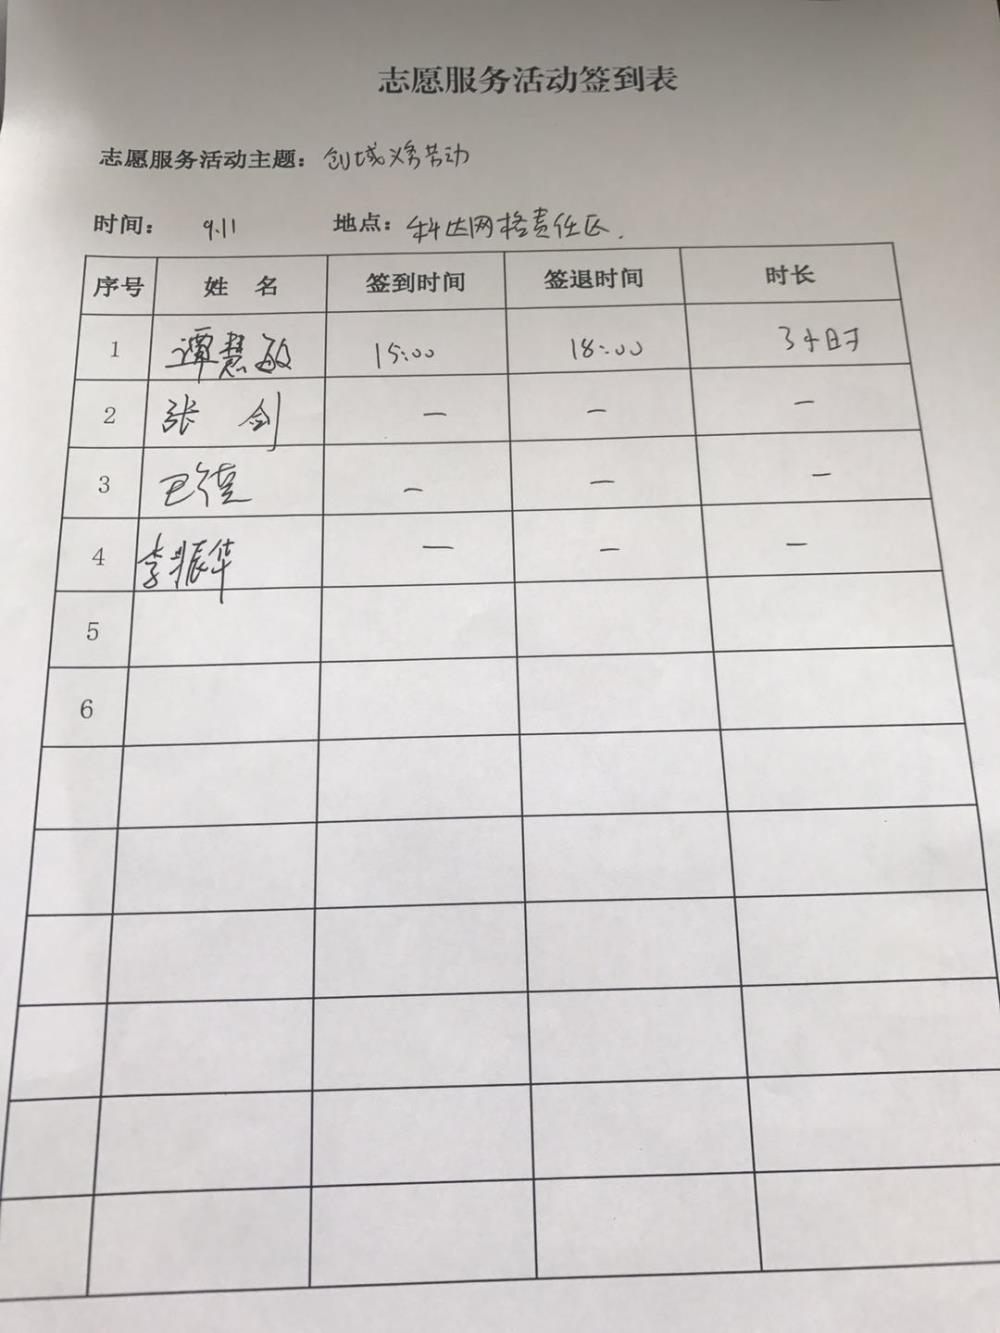 志愿服务活动签到表
志愿服务活动主题：创城义务劳动
时间： 9.11 地点：科达网格责任区.
序号 姓名 签到时间 签退时间 时长
1 谭慧敏 15:00 18:00 3小时
2 张剑 — — —
3 — — —
4 李振华 — — —
5
6